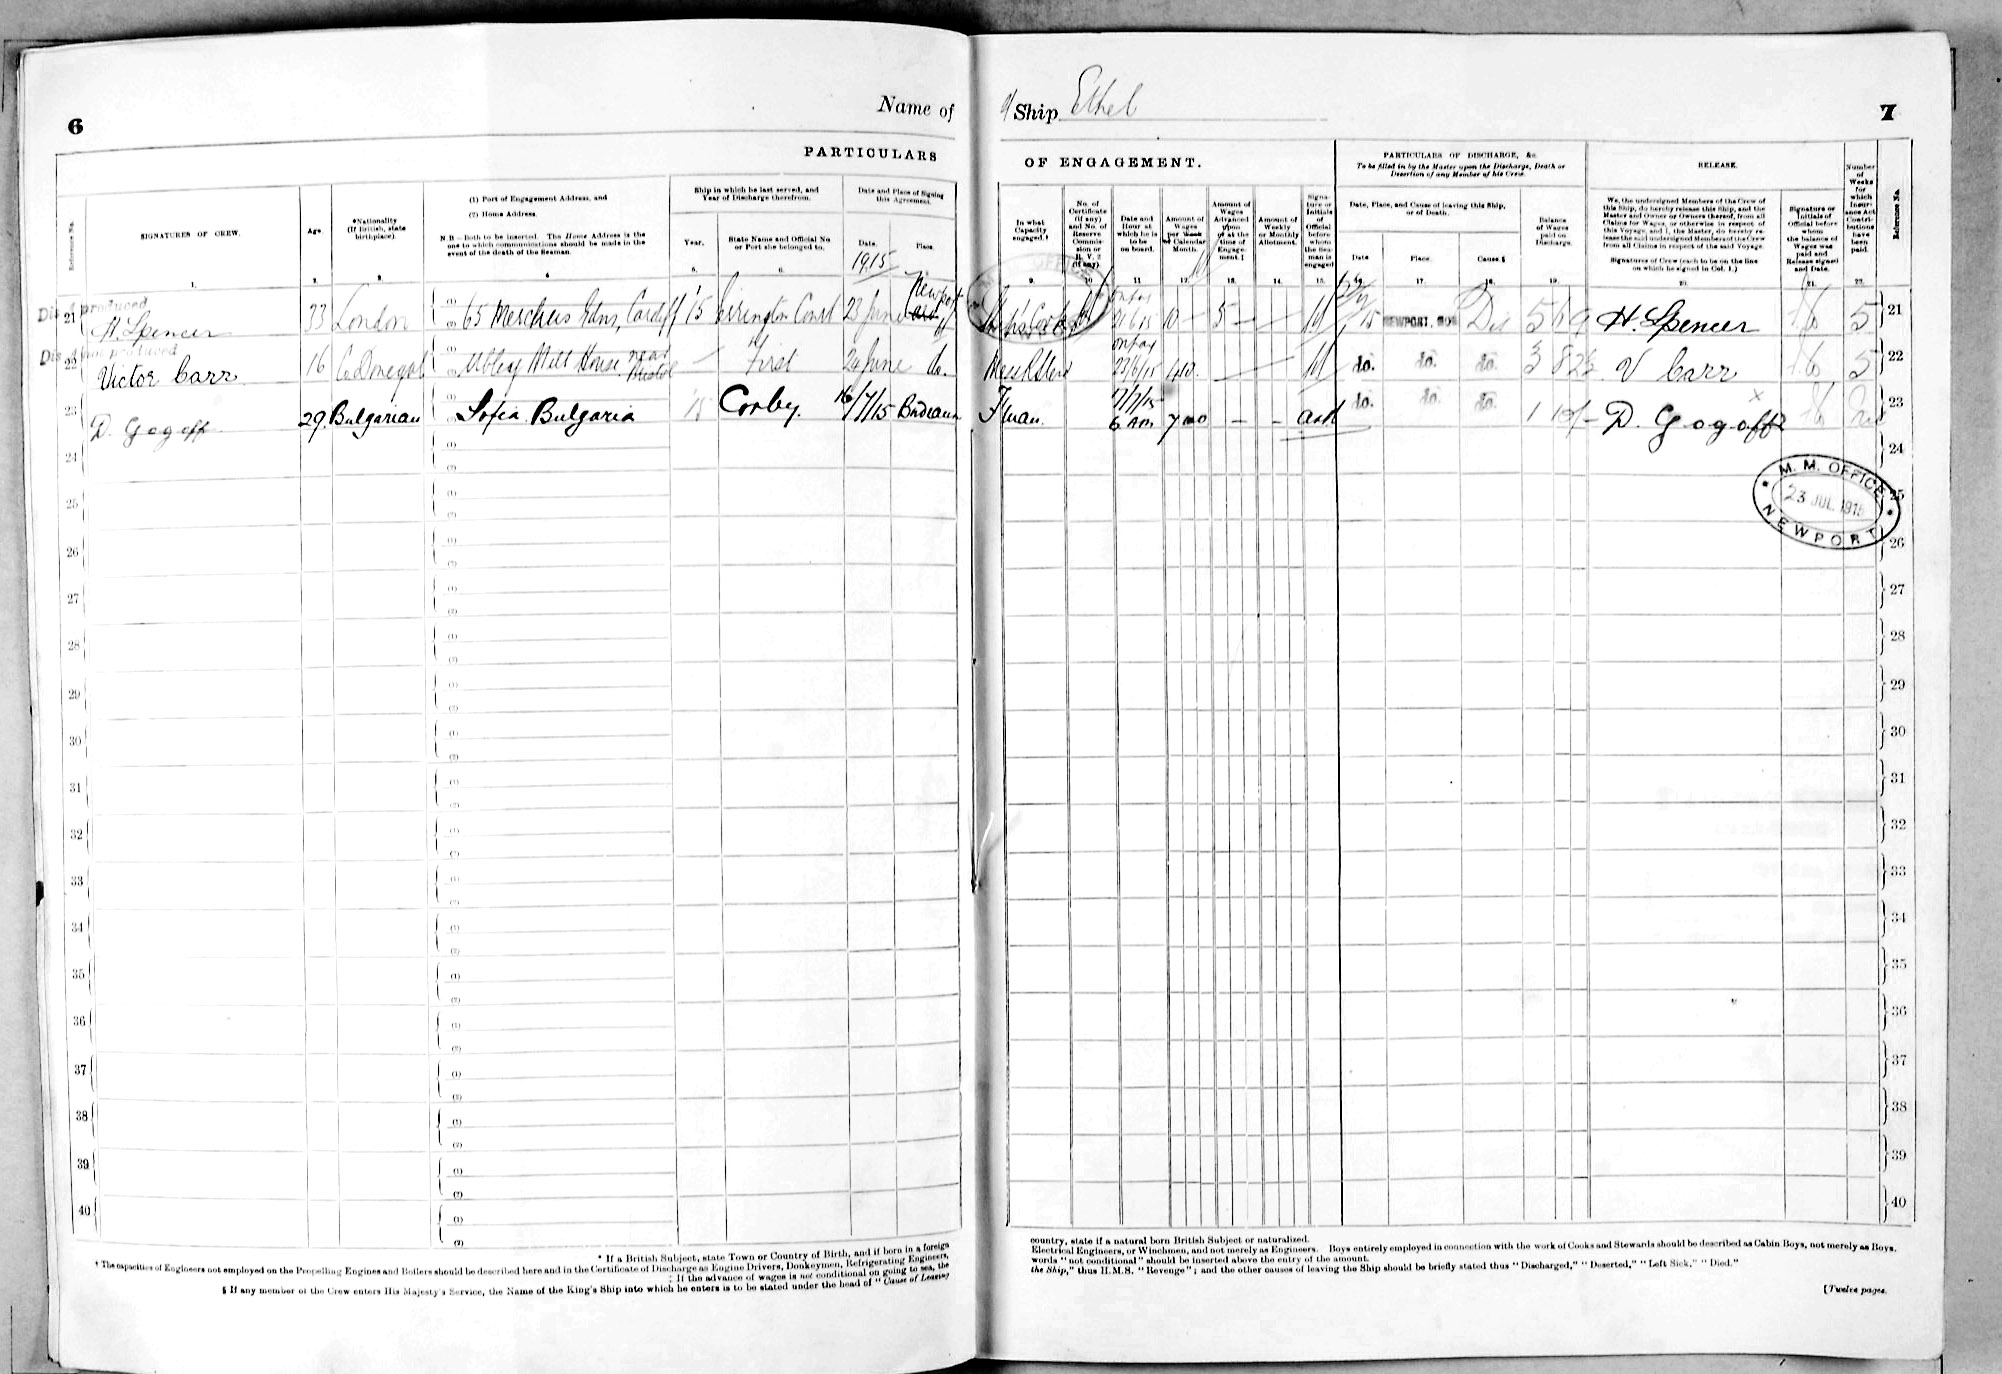 6
Name of
PARTICULARS
Reference No.
SIGNATURES OF CREW.
Age.
*Nationality
(If British, state
birthplace).
(1) Port of Engagement Address, and
(2) Home Address.
N.B.—Both to be inserted. The Home Address is the
one to which communications should be made in the
event of the death of the Seaman.
Ship in which he last served, and
Year of Discharge therefrom.
Year.
State Name and Official No.
or Port she belonged to.
Date and Place of Signing
this Agreement.
Date.
Place.
1915
1. 2. 3. 4. 5. 6.
Dis A produced
21 H. Spencer 33 London 65 Merches Gdns, Cardiff 15 Errington Court 23 June Newport
Dis A not produced
22 Victor Carr 16 Co Donegal Abbey Mill House near Bristol First 24 June do.
23 D. Gogoff 29 Bulgarian Sofia Bulgaria 15 Corby. 16/7/15 Bordeaux
24
25
26
27
28
29
30
31
32
33
34
35
36
37
38
39
40
* If a British Subject, state Town or Country of Birth, and if born in a foreign
† The capacities of Engineers not employed on the Propelling Engines and Boilers should be described here and in the Certificate of Discharge as Engine Drivers, Donkeymen, Refrigerating Engineers,
‡ If the advance of wages is not conditional on going to sea, the
§ If any member of the Crew enters His Majesty's Service, the Name of the King's Ship into which he enters is to be stated under the head of "Cause of Leaving
of Ship Ethel
7
OF ENGAGEMENT.
PARTICULARS OF DISCHARGE, &c.
To be filled in by the Master upon the Discharge, Death or
Desertion of any Member of his Crew.
RELEASE.
Number
of
Weeks
for
which
Insur-
ance Act
Contri-
butions
have
been
paid.
Reference No.
In what
Capacity
engaged.†
No. of
Certificate
(if any)
and No. of
Reserve
Commis-
sion or
R.V.2
(if any).
Date and
Hour at
which he is
to be
on board.
Amount of
Wages
per Week
or Calendar
Month.
Amount of
Wages
Advanced
upon
or at the
time of
Engage-
ment.‡
Amount of
Weekly
or Monthly
Allotment.
Signa-
ture or
Initials
of
Official
before
whom
the Sea-
man is
engaged
Date, Place, and Cause of leaving this Ship,
or of Death.
Date
Place.
Cause.§
Balance
of Wages
paid on
Discharge.
We, the undersigned Members of the Crew of
this Ship, do hereby release this Ship, and the
Master and Owner or Owners thereof, from all
Claims for Wages, or otherwise in respect of
this Voyage, and I, the Master, do hereby re-
lease the said undersigned Members of the Crew
from all Claims in respect of the said Voyage.
Signatures of Crew (each to be on the line
on which he signed in Col. 1.)
Signature or
Initials of
Official before
whom
the balance of
Wages was
paid and
Release signed
and Date.
9. 10. 11. 12. 13. 14. 15. 16. 17. 18. 19. 20. 21. 22.
15 NEWPORT, MON Dis 5 19 H. Spencer 5 21
23/6/15 do. do. do. 3 8 2½ V Carr 5 22
Fman. 17/7/15 6 AM do. do. do. D. Gogoff 23
24
M. M. OFFICE
23 JUL 1915
NEWPORT
25
26
27
28
29
30
31
32
33
34
35
36
37
38
39
40
country, state if a natural born British Subject or naturalized.
Electrical Engineers, or Winchmen, and not merely as Engineers. Boys entirely employed in connection with the work of Cooks and Stewards should be described as Cabin Boys, not merely as Boys.
words "not conditional" should be inserted above the entry of the amount.
the Ship," thus H.M.S. "Revenge"; and the other causes of leaving the Ship should be briefly stated thus "Discharged," "Deserted," "Left Sick," "Died."
[Twelve pages.